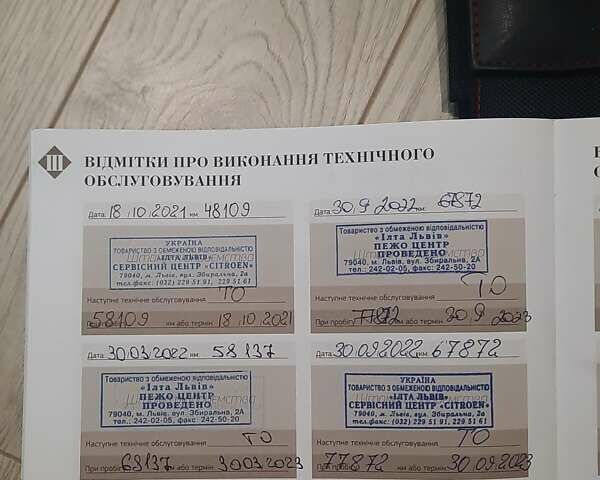 III
ВІДМІТКИ ПРО ВИКОНАННЯ ТЕХНІЧНОГО
ОБСЛУГОВУВАННЯ
Дата 18.10.2021 км 48109
УКРАЇНА
ТОВАРИСТВО З ОБМЕЖЕНОЮ ВІДПОВІДАЛЬНІСТЮ
«ІЛТА ЛЬВІВ»
СЕРВІСНИЙ ЦЕНТР «CITROEN»
79040, м. Львів, вул. Збиральна, 2а
тел./факс: (032) 229 51 91, 229 51 61
Наступне технічне обслуговування ТО
При пробігу 58109 км або термін 18.10.2021
Дата 30.9.2022 км 67872
Товариство з обмеженою відповідальністю
«Ілта Львів»
ПЕЖО ЦЕНТР
ПРОВЕДЕНО
79040, м. Львів, вул. Збиральна, 2А
тел.: 242-02-05, факс: 242-50-20
Наступне технічне обслуговування ТО
При пробігу 77872 км або термін 30.9.2023
Дата 30.03.2022 км 58137
Товариство з обмеженою відповідальністю
«Ілта Львів»
ПЕЖО ЦЕНТР
ПРОВЕДЕНО
79040, м. Львів, вул. Збиральна, 2А
тел.: 242-02-05, факс: 242-50-20
Наступне технічне обслуговування ТО
При пробігу 68137 км або термін 30.03.2023
Дата 30.09.2022 67872
УКРАЇНА
ТОВАРИСТВО З ОБМЕЖЕНОЮ ВІДПОВІДАЛЬНІСТЮ
«ІЛТА ЛЬВІВ»
СЕРВІСНИЙ ЦЕНТР «CITROEN»
79040, м. Львів, вул. Збиральна, 2а
тел./факс: (032) 229 51 91, 229 51 61
Наступне технічне обслуговування ТО
При пробігу 77872 км або термін 30.09.2023